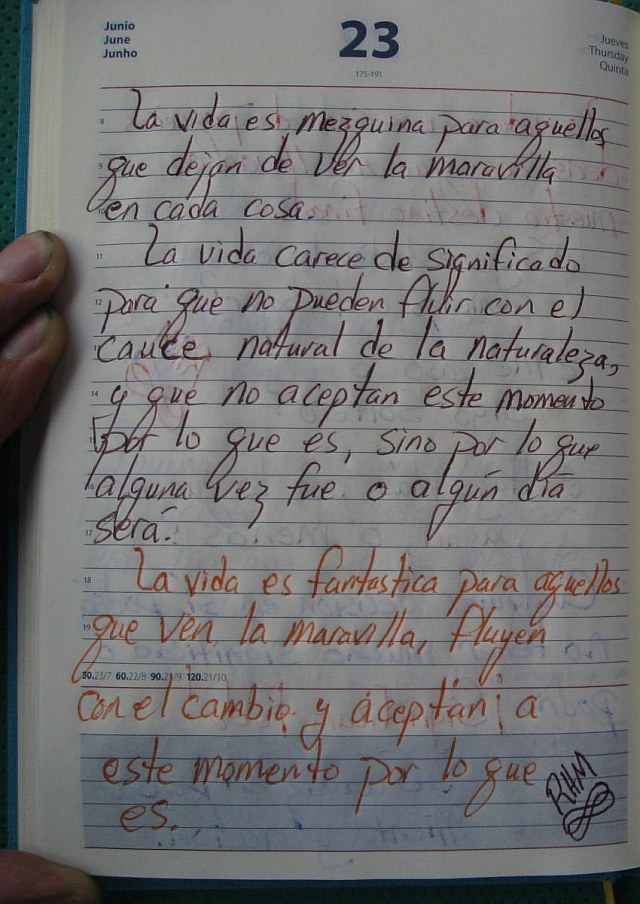 Junio
June
Junho
23
175-191
Jueves
Thursday
Quinta
8
La vida es mezquina para aquellos
9
que dejan de ver la maravilla
10
en cada cosa.
11
La vida carece de significado
12
para que no pueden fluir con el
cauce natural de la naturaleza,
14
y que no aceptan este momento
15
por lo que es, sino por lo que
16
alguna vez fue o algún día
17
será.
18
La vida es fantastica para aquellos
19
que ven la maravilla, fluyen
30.23/7 60.22/8 90.21/9 120.21/10
con el cambio y aceptan a
este momento por lo que
es.
RHM